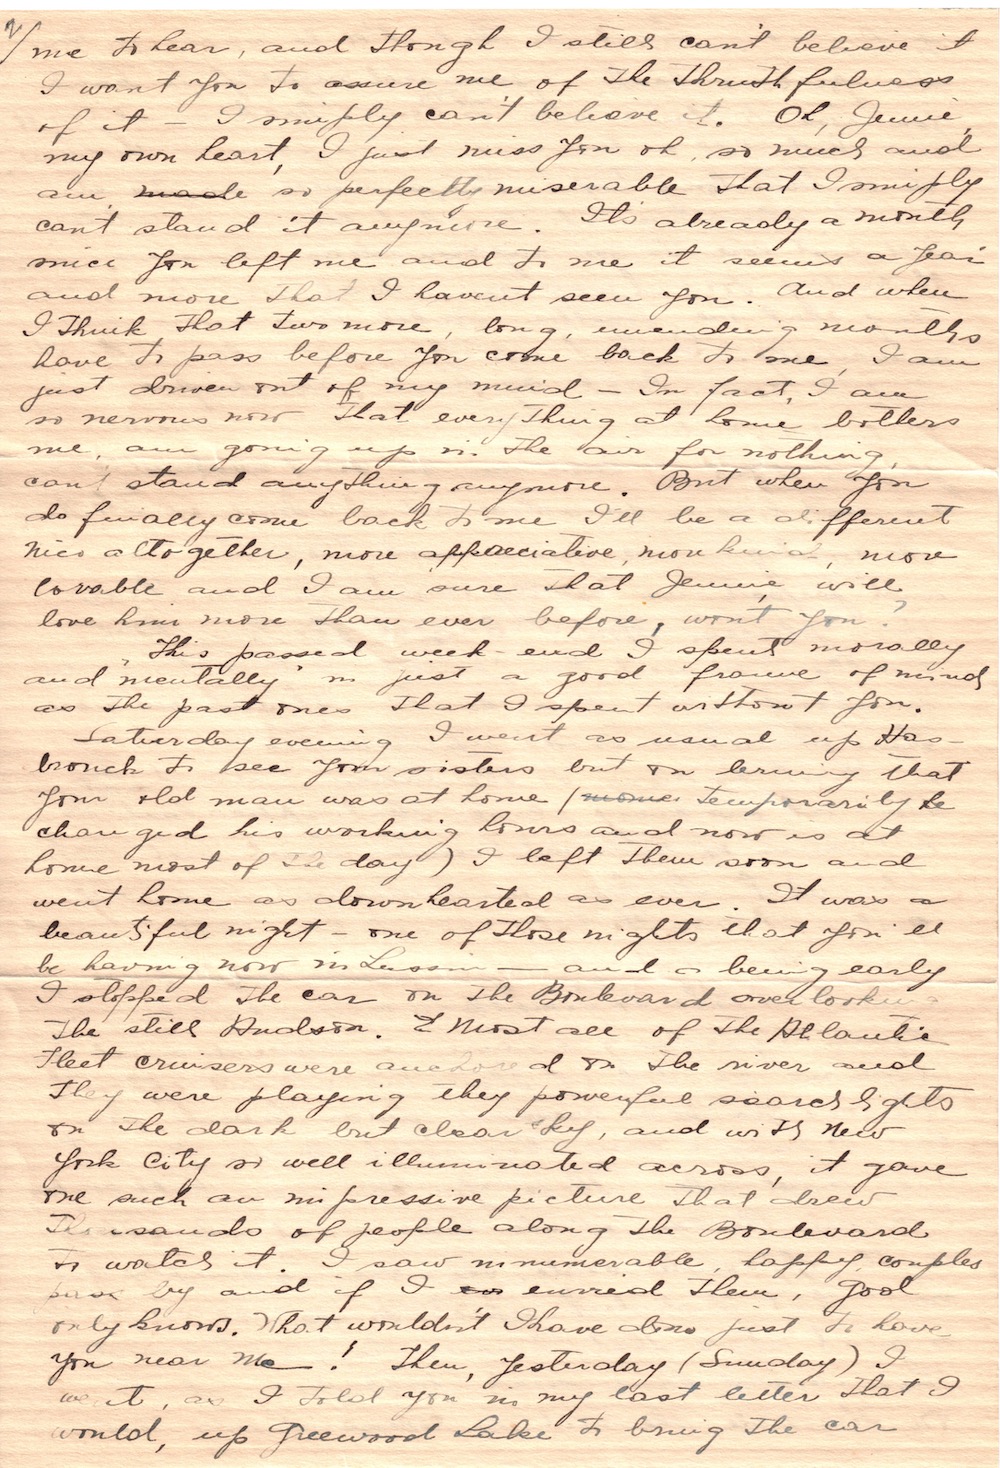 2/
me to hear, and though I still can't believe it
I want you to assure me of the thruthfulness
of it – I simply can't believe it. Oh, Jennie,
my own heart, I just miss you oh, so much and
am, made so perfectly miserable that I simply
can't stand it anymore. It's already a month
since you left me and to me it seems a year
and more that I havent seen you. And when
I think that two more, long, unending months
have to pass before you come back to me, I am
just driven out of my mind – In fact, I am
so nervous now that everything at home bothers
me, am going up in the air for nothing,
can't stand anything anymore. But when you
do finally come back to me I'll be a different
Nico altogether, more appreciative, more kind, more
lovable and I am sure that Jennie, will
love him more than ever before, wont you?
"This passed week-end I spent morally
and "mentally" in just a good frame of mind
as the past ones that I spent without you.
Saturday evening I went as usual up Has-
brouck to see your sisters but on lerning that
your old man was at home (temporarily he
changed his working hours and now is at
home most of the day) I left them soon and
went home as downhearted as ever. It was a
beautiful night – one of those nights that you'll
be having now in Lussin – and a being early
I stopped the car on the Boulevard overlooking
the still Hudson. Most all of the Atlantic
Fleet cruisers were anchored on the river and
they were playing they powerful searchlights
on the dark but clear sky, and with New
York City so well illuminated across, it gave
one such an impressive picture that drew
thousands of people along the Boulevard
to watch it. I saw innumerable, happy, couples
pass by and if I envied them, God
only knows. What wouldn't I have done just to have
you near me! Then, yesterday (Sunday) I
went, as I told you in my last letter that I
would, up Greewood Lake to bring the car